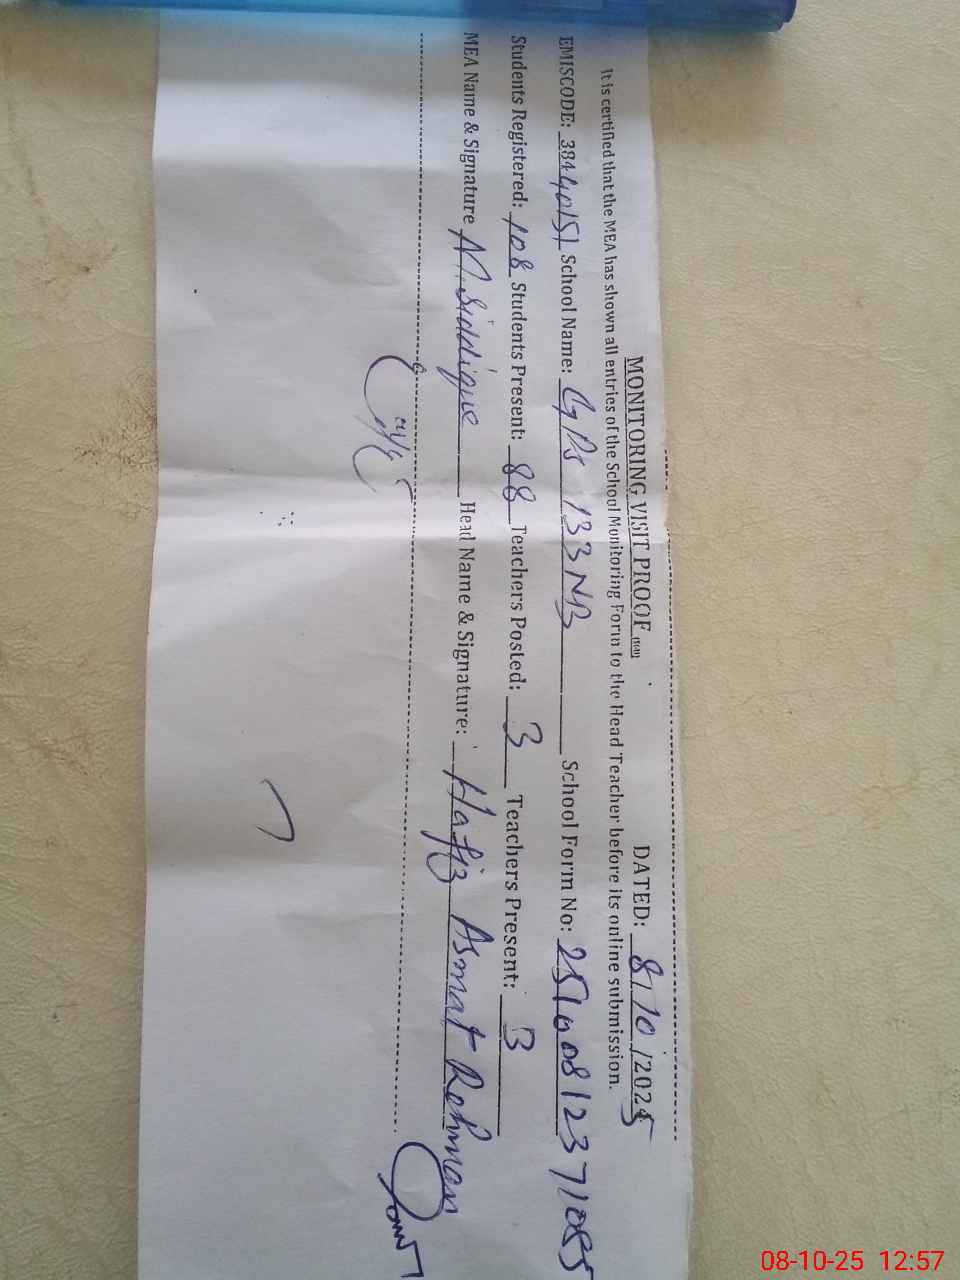 MONITORING VISIT PROOF DATED: 8/10/2025
It is certified that the MEA has shown all entries of the School Monitoring Form to the Head Teacher before its online submission.
EMISCODE: 38440151 School Name: GPS 133NB School Form No: 25100812371085
Students Registered: 108 Students Present: 88 Teachers Posted: 3 Teachers Present: 3
MEA Name & Signature M. Siddique Head Name & Signature: Hafiz Asmat Rehman
08-10-25 12:57